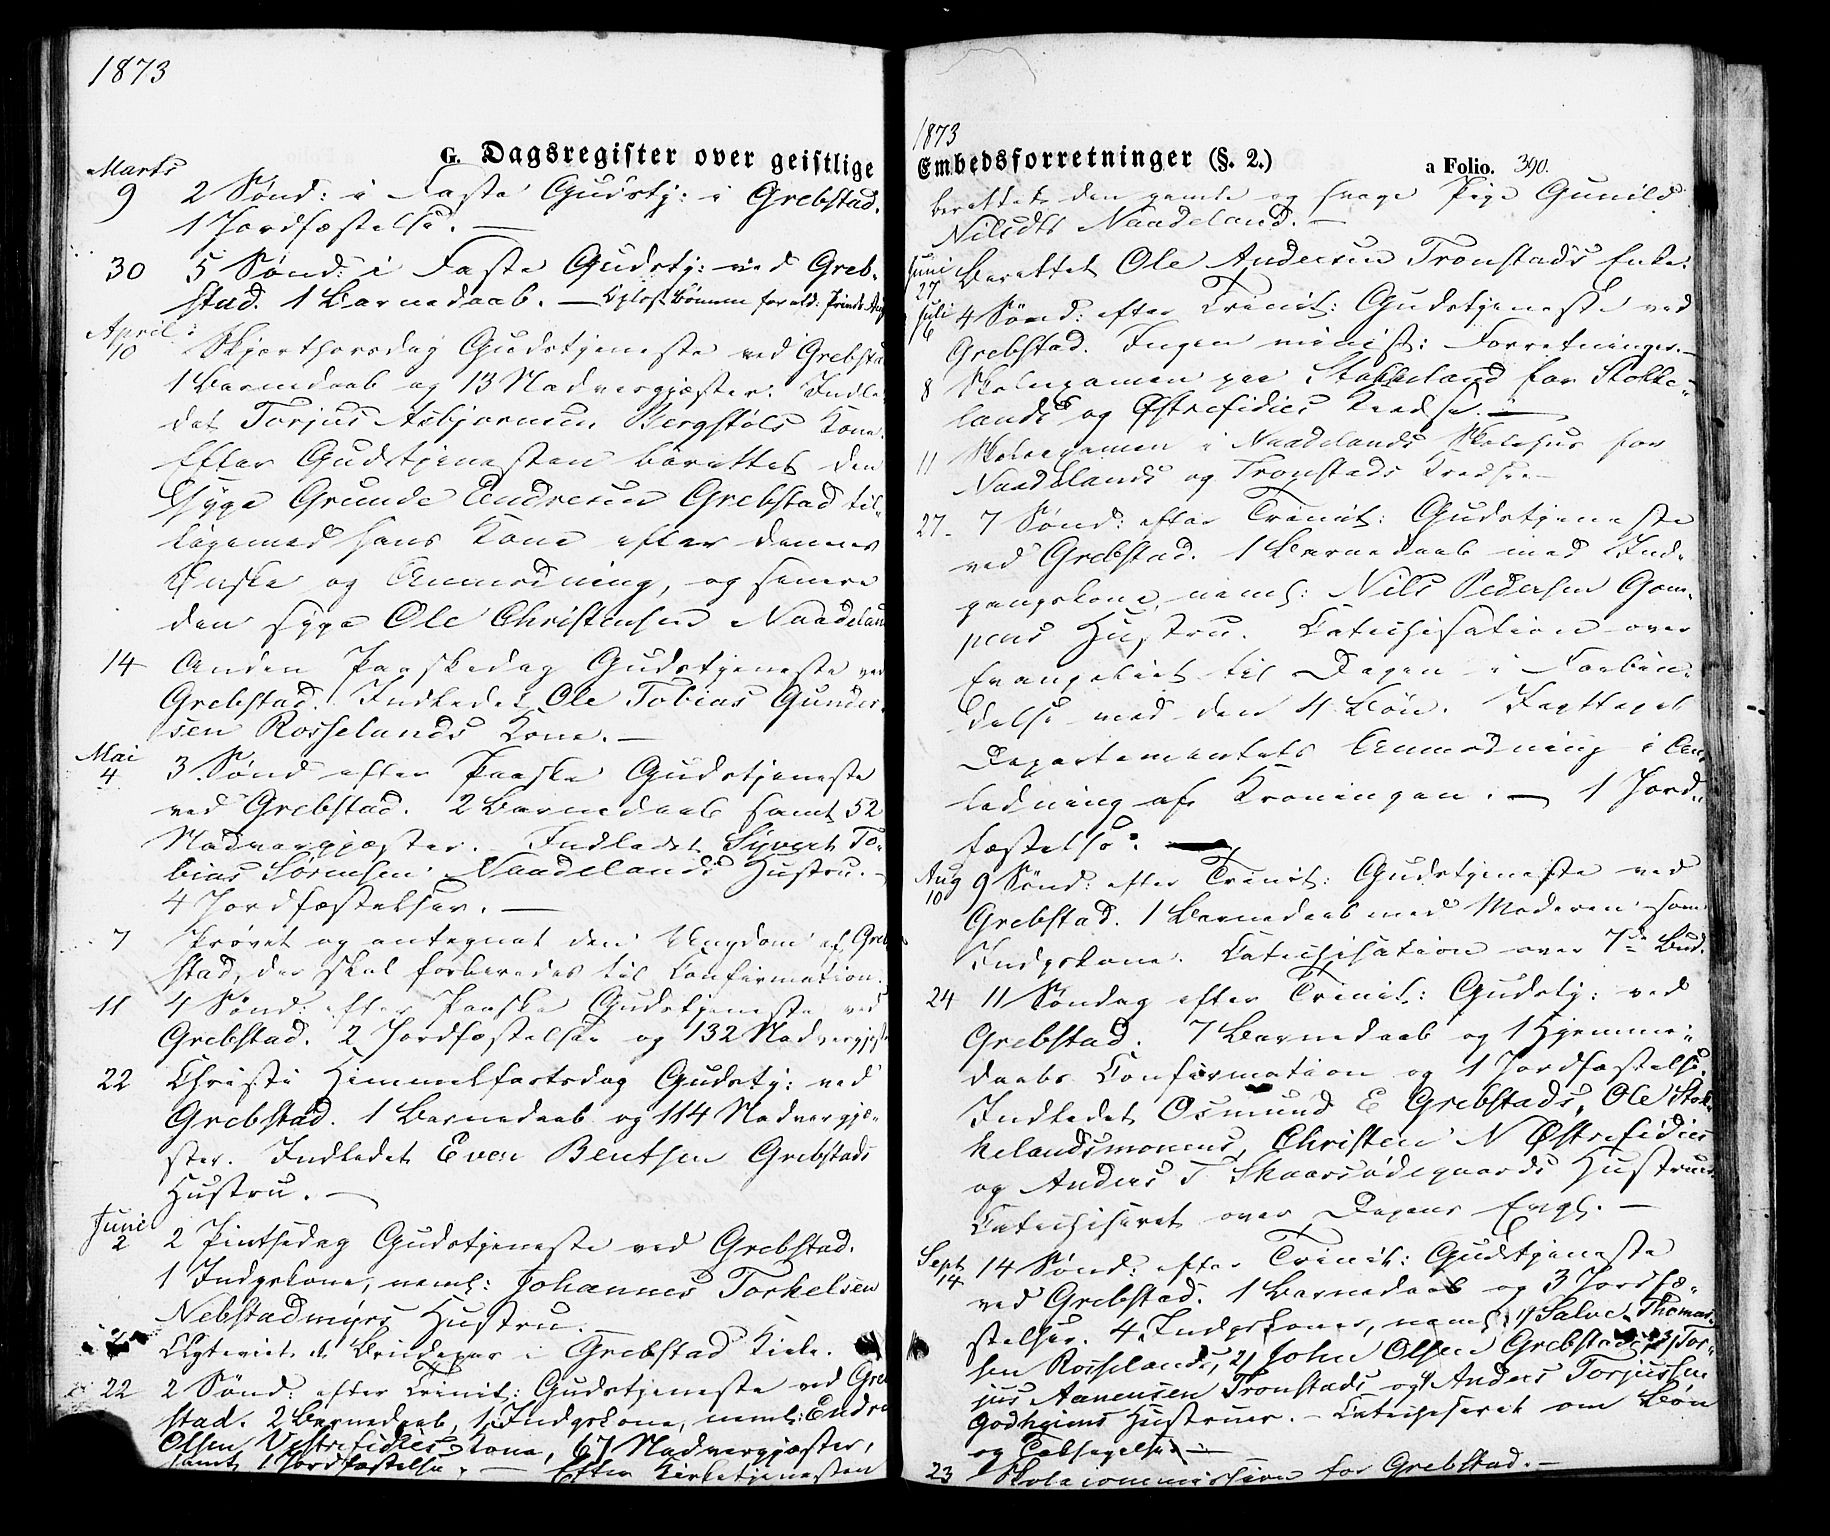 1873
G. Dagsregister over geistlige
Marts
9 2 Sønd: i Faste Gudstj: i Grebstad.
1 Jordfæstelse. —
30 5 Sønd: i Faste Gudstj: ved Greb-
stad. 1 Barnedaab. — Oplæst Bønnen for afd. Prinds Aug
April
10 Skjærthorsdag Gudstjeneste ved Grebsta
1 Barnedaab og 13 Nadvergjæster. Indle-
det Torjus Asbjørnsen Bergstøls Kone.
Efter Gudstjenesten berettet den
syge Grunde Endresen Grebstad til-
ligemed hans Kone efter dennes
Ønske og Anmodning, og senere
den syge Ole Christensen Naadeland
14 Anden Paaskedag Gudstjeneste ved
Grebstad. Indledet Ole Tobias Gunder-
sen Rosselands Kone. —
Mai
4 3 Sønd efter Paaske Gudstjeneste
ved Grebstad. 2 Barnedaab samt 52
Nadvergjæster. Indledet Syvert To-
bias Sørensen Naadelands Hustru. —
4 Jordfæstelser. —
7 Prøvet og antegnet den Ungdom af Greb
stad, der skal forberedes til Confirmation.
11 4 Sønd: efter Paaske Gudstjeneste ved
Grebstad. 2 Jordfæstelser og 132 Nadvergjæste
22 Christi Himmelfartsdag Gudstj: ved
Grebstad. 1 Barnedaab og 114 Nadvergjæ-
ster. Indledet Even Bentsen Grebstads
Hustru. —
Juni
2 2 Pintsedag Gudstjeneste ved Grebstad.
1 Indgskone, neml: Johannes Torkelsen
Nebstadmyrs Hustru. —
Egteviet et Brudepar i Grebstad Kirke.
22 2 Sønd: efter Trinit: Gudstjeneste ved Greb
stad. 2 Barnedaab, 1 Indgskone, neml: Endre
Olsen Vestrefidjes Kone, 67 Nadvergjæster,
samt 1 Jordfæstelse. — Efter Kirketjenesten
1873
Embedsforretninger (§. 2.) a Folio. 390.
berettet den gamle og svage Pige Gunild
Nilsdtr Naadeland. —
Juni
27 Berettet Ole Andersen Tronstads Enke.
Juli
6 4 Sønd: efter Trinit: Gudstjeneste ved
Grebstad. Ingen minist: Forretninger. —
8 Skolexamen paa Stokkeland for Stokke-
lands og Østrefidjes Kreds. —
11 Skolexamen i Naadelands Skolehus for
Naadelands og Tronstads Kredse. —
27. 7 Sønd: efter Trinit: Gudstjeneste
ved Grebstad. 1 Barnedaab med Ind-
gangskone, neml: Nils Pedersen Gom-
pens Hustru. Catechisation over
Evangeliet til Dagen i Forbin-
delse med den 4 Bøn. Iagttaget
Departementets Anmodning i An-
ledning af Kroningen. — 1 Jord-
fæstelse. —
Aug
10 9 Sønd: efter Trinit: Gudstjeneste ved
Grebstad. 1 Barnedaab med Moderen som
Indgskone. Catechisation over 7de Bud.
24 11 Søndag efter Trinit: Gudstj: ved
Grebstad. 7 Barnedaab og 1 Hjemme-
daabs Confirmation og 1 Jordfæstelse.
Indledet Osmund E Grebstads, Ole Stok-
kelandsmonens, Christen N Østrefidjes
og Anders T Skaarsødegaards Hustruer
Catechiseret over Dagens Evgl. —
Sept
14 14 Sønd: efter Trinit: Gudstjeneste
ved Grebstad. 1 Barnedaab og 3 Jordfæ-
stelser. 4 Indgskoner, neml: 1/ Salve Thomas-
sen Rosselands, 2/ John Olsen Grebstads, 3/ Tor-
jus Aanensen Tronstads og 4/ Anders Torjussen
Godheims Hustruer. — Catechiseret om Bøn
og Taksigelse. —
23 Skolecommission for Grebstad. —